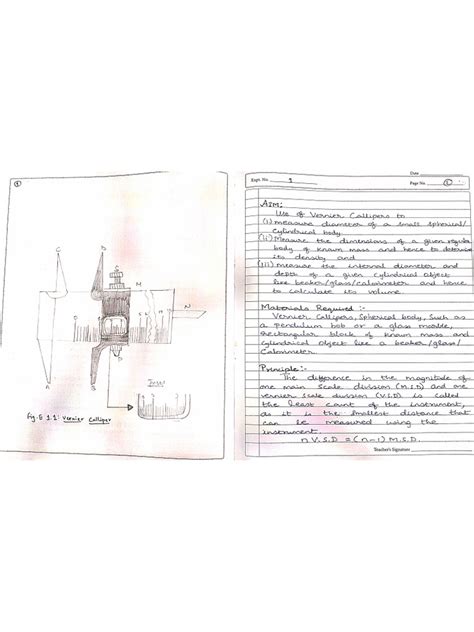 1
C
B
M
N
D
S
L
A
B
Inset
Fig. E 1.1: Vernier Calliper
Date
Expt. No. 1
Page No. 1
AIM:
Use of Vernier Callipers to
(i) measure diameter of a small spherical/
cylindrical body
(ii) Measure the dimensions of a given regular
body of known mass and hence to determine
its density and
(iii) measure the internal diameter and
depth of a given cylindrical object
like beaker/glass/calorimeter and hence
to calculate its volume
Materials Required :-
Vernier Callipers, Spherical body, Such as
a pendulum bob or a glass marble,
Rectangular block of known mass and
cylindrical object like a beaker/glass/
Calorimeter
Principle:-
The difference in the magnitude of
one main scale division (M.S.D) and one
vernier scale division (V.S.D) is called
the least count of the instrument,
as it is the smallest distance that
can be measured using the
instrument.
n V.S.D = (n-1) M.S.D.
Teacher's Signature